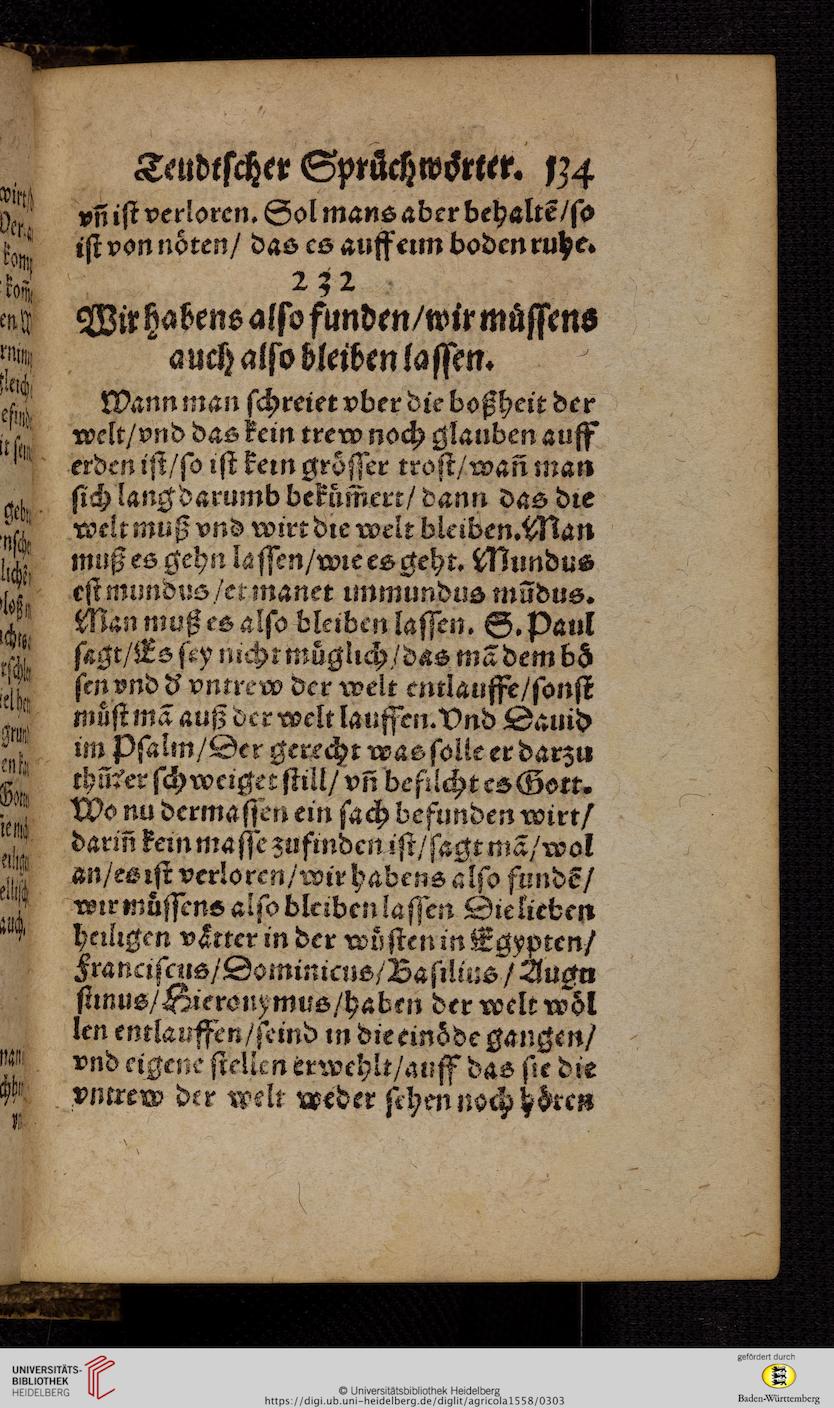 Teudtſcher Spruͤchwoͤrter. 134
vñ iſt verloren. Sol mans aber behaltẽ/ſo
iſt von noͤten/ das es auff eim boden ruhe.
232
Wir habens alſo funden/wir muͤſſens
auch alſo bleiben laſſen.
Wann man ſchreiet vber die boßheit der
welt/vnd das kein trew noch glauben auff
erden iſt/ſo iſt kein groͤſſer troſt/wañ man
ſich lang darumb bekuͤm̃ert/ dann das die
welt muß vnd wirt die welt bleiben. Man
muß es gehn laſſen/wie es geht. Mundus
eſt mundus/et manet immundus mũdus.
Man muß es alſo bleiben laſſen. S. Paul
ſagt/Es ſey nicht muͤglich/das mã dem boͤ
ſen vnd d' vntrew der welt entlauffe/ſonſt
muͤſt mã auß der welt lauffen. Vnd Dauid
im Pſalm/Der gerecht was ſolle er darzu
thũ? er ſchweiget ſtill/ vñ befilcht es Gott.
Wo nu dermaſſen ein ſach befunden wirt/
dariñ kein maſſe zufinden iſt/ſagt mã/wol
an/es iſt verloren/wir habens alſo fundẽ/
wir muͤſſens alſo bleiben laſſen Die lieben
heiligen vaͤtter in der wuͤſten in Egypten/
Franciſcus/Dominicus/Baſilius/Augu
ſtinus/Hieronymus/haben der welt woͤl
len entlauffen/ſeind in die einoͤde gangen/
vnd eigene ſtellen erwehlt/auff das ſie die
vntrew der welt weder ſehen noch hoͤren
UNIVERSITÄTS-
BIBLIOTHEK
HEIDELBERG
© Universitätsbibliothek Heidelberg
https://digi.ub.uni-heidelberg.de/diglit/agricola1558/0303
gefördert durch
Baden-Württemberg